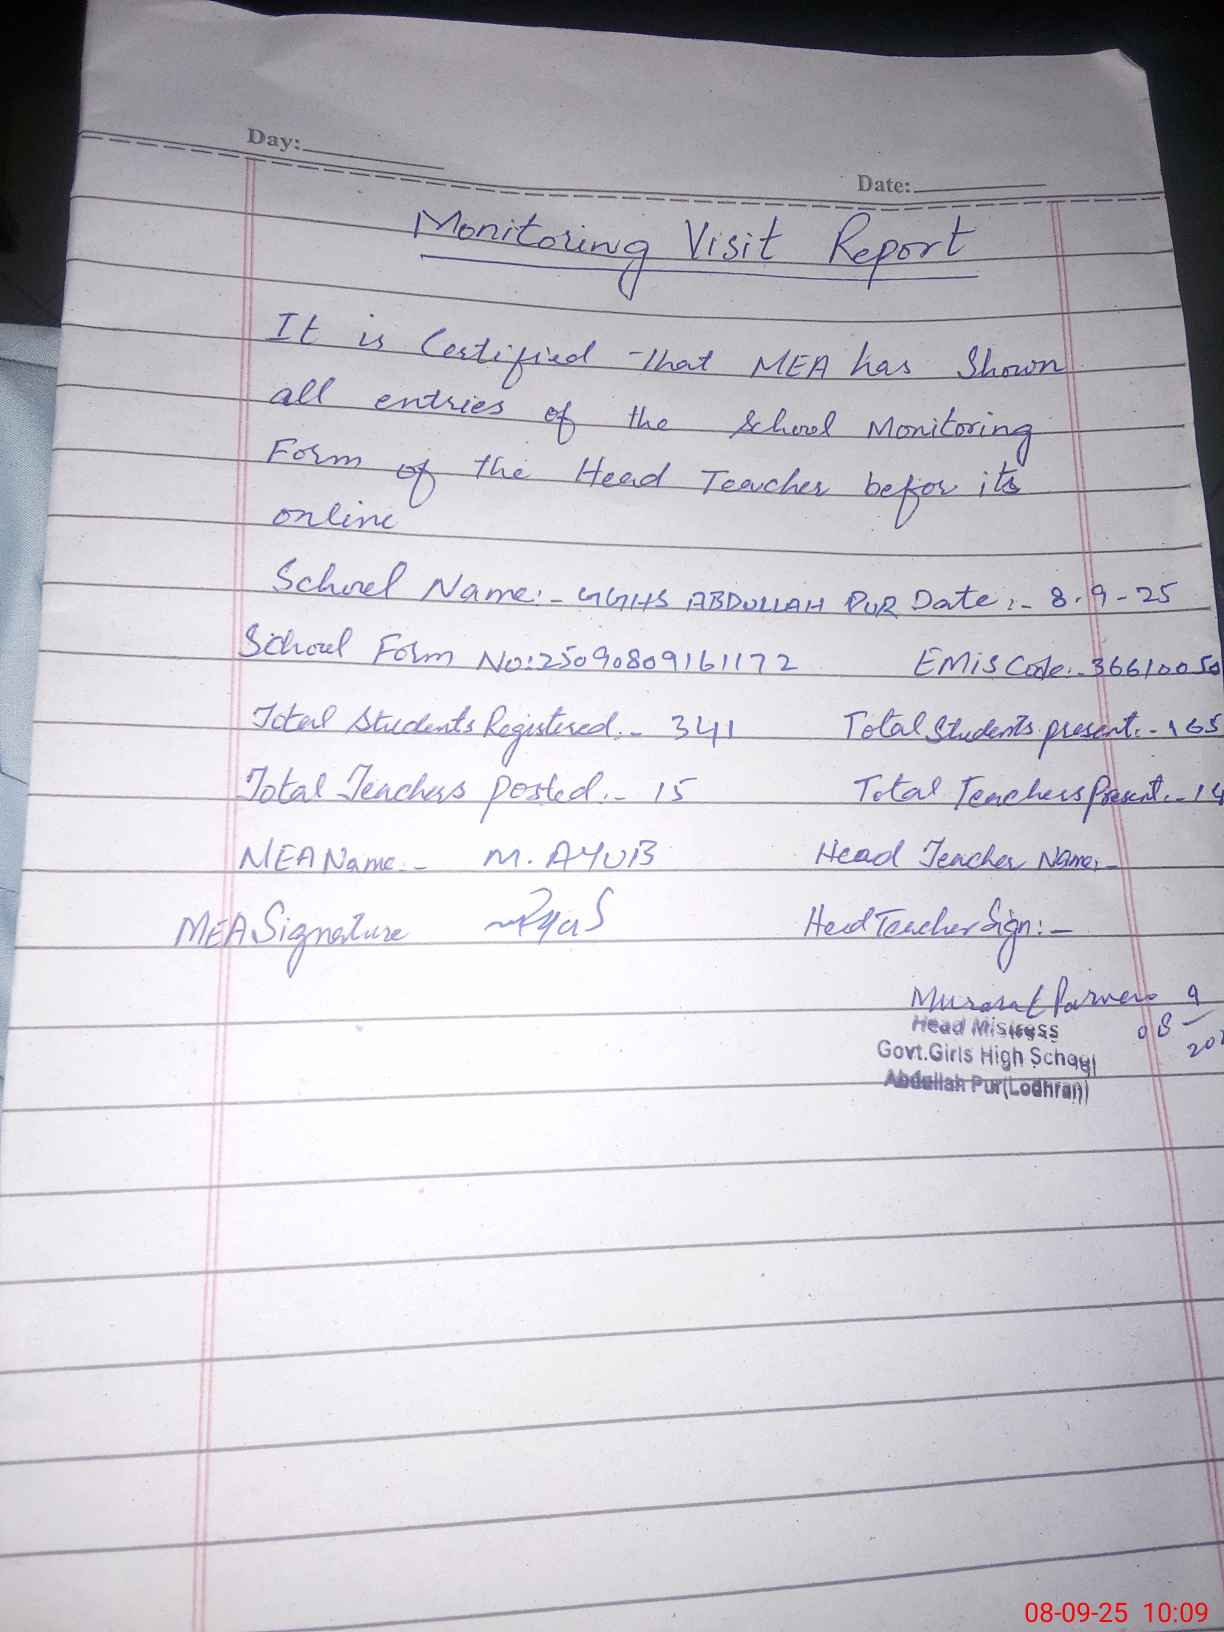 Day:
Date:
Monitoring Visit Report
It is Certified that MEA has Shown
all entries of the School Monitoring
Form of the Head Teacher befor its
online
School Name:- GGHS ABDULLAH PUR Date:- 8-9-25
School Form No:25090809161172 EMIS Code:-36610050
Total Students Registered:- 341 Total Students present:-165
Total Teachers posted:- 15 Total Teachers Present:-14
MEA Name:- M. AYUB Head Teacher Name:-
MEA Signature Head Teacher Sign:-
Parveen 9
08
Head Mistress
Govt.Girls High School
Abdullah Pur(Lodhran)
08-09-25 10:09